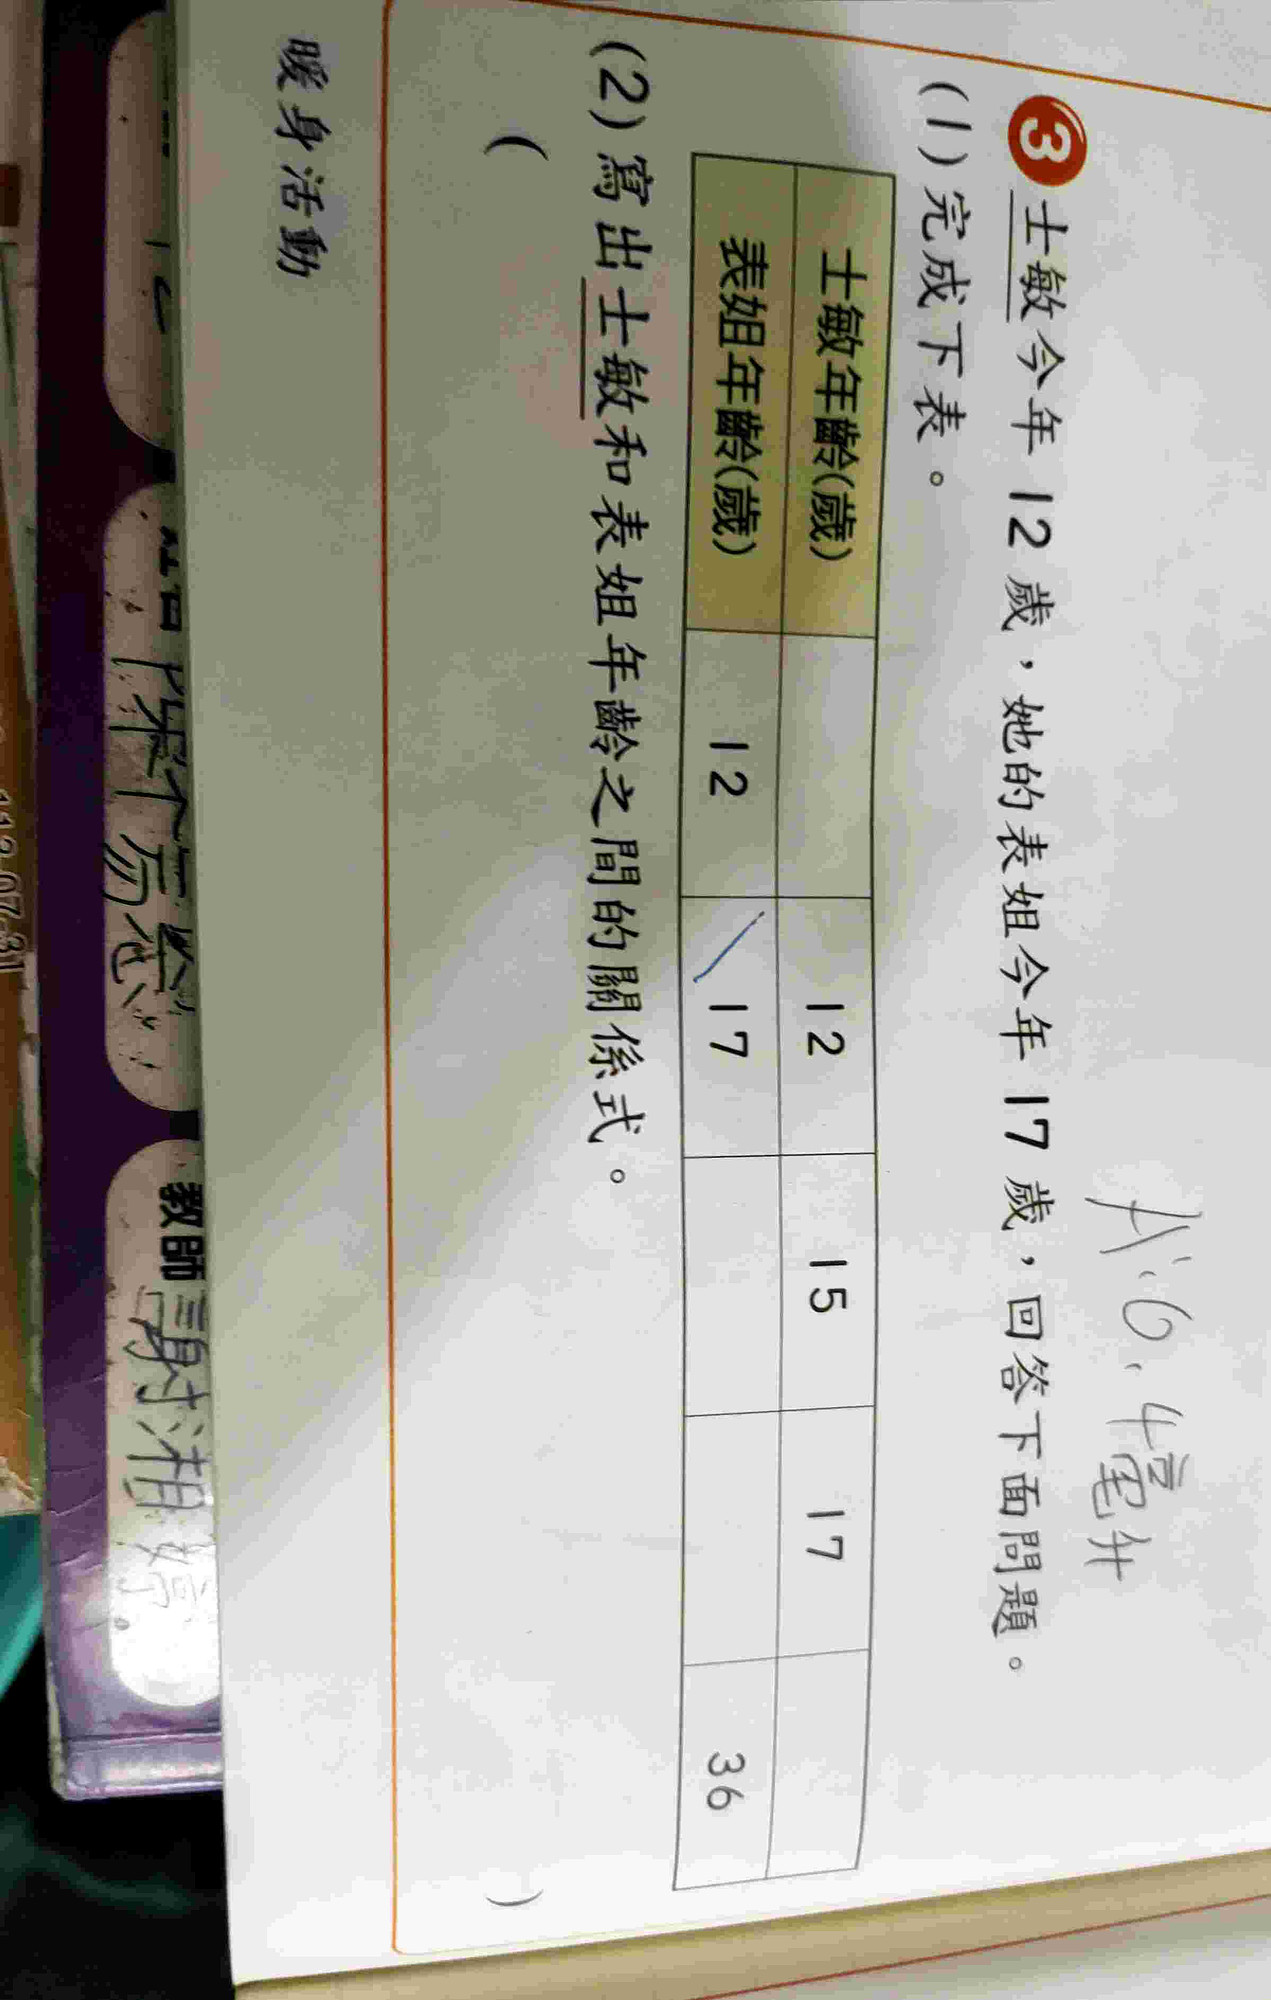 A:6.4毫升
3 士敏今年 12 歲，她的表姐今年 17 歲，回答下面問題。
(1) 完成下表。
士敏年齡(歲) 12 15 17
表姐年齡(歲) 12 17 36
(2) 寫出士敏和表姐年齡之間的關係式。
( )
暖身活動
教師 謝湘婷
112-07-31